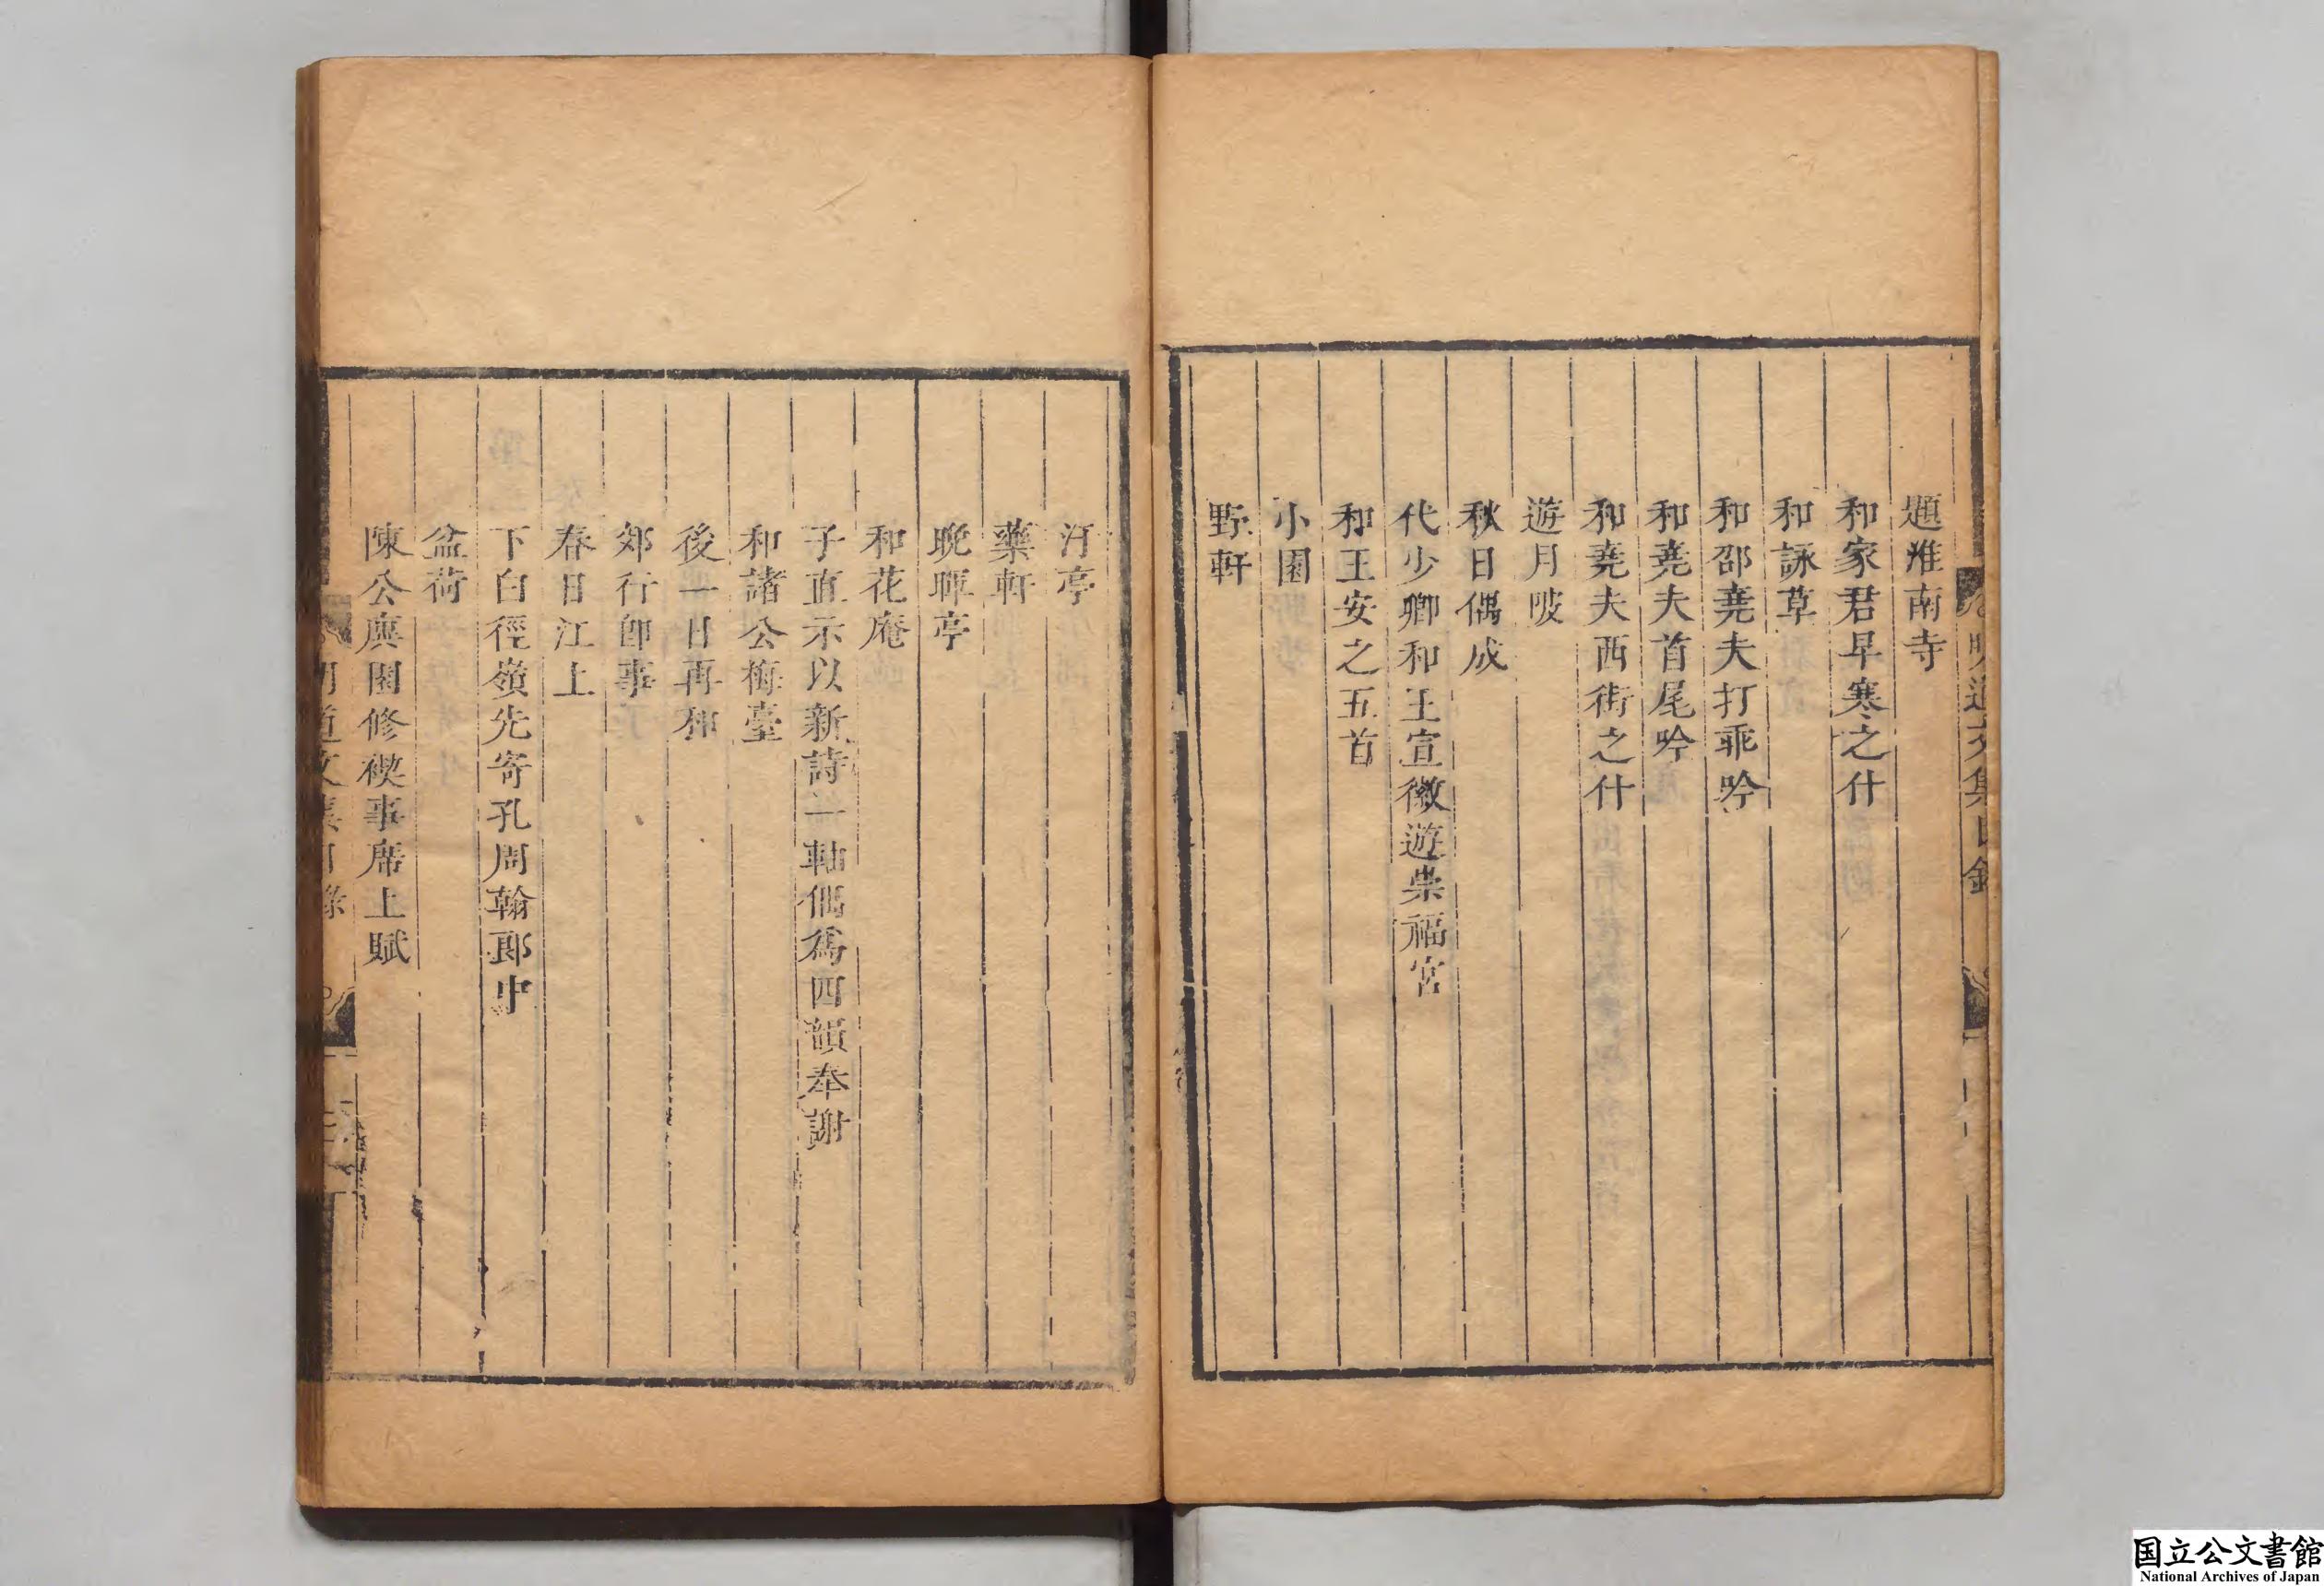 明道文集目錄
題淮南寺
和家君早寒之什
和詠草
和邵堯夫打乖吟
和堯夫首尾吟
和堯夫西街之什
遊月陂
秋日偶成
代少卿和王宣徽遊崇福宮
和王安之五首
小園
野軒
汙亭
藥軒
晚暉亭
和花庵
子直示以新詩一軸偶爲四韻奉謝
和諸公梅臺
後一日再和
郊行卽事
春日江上
下白徑嶺先寄孔周翰郎中
盆荷
陳公廙園修禊事席上賦
明道文集目錄
国立公文書館
National Archives of Japan